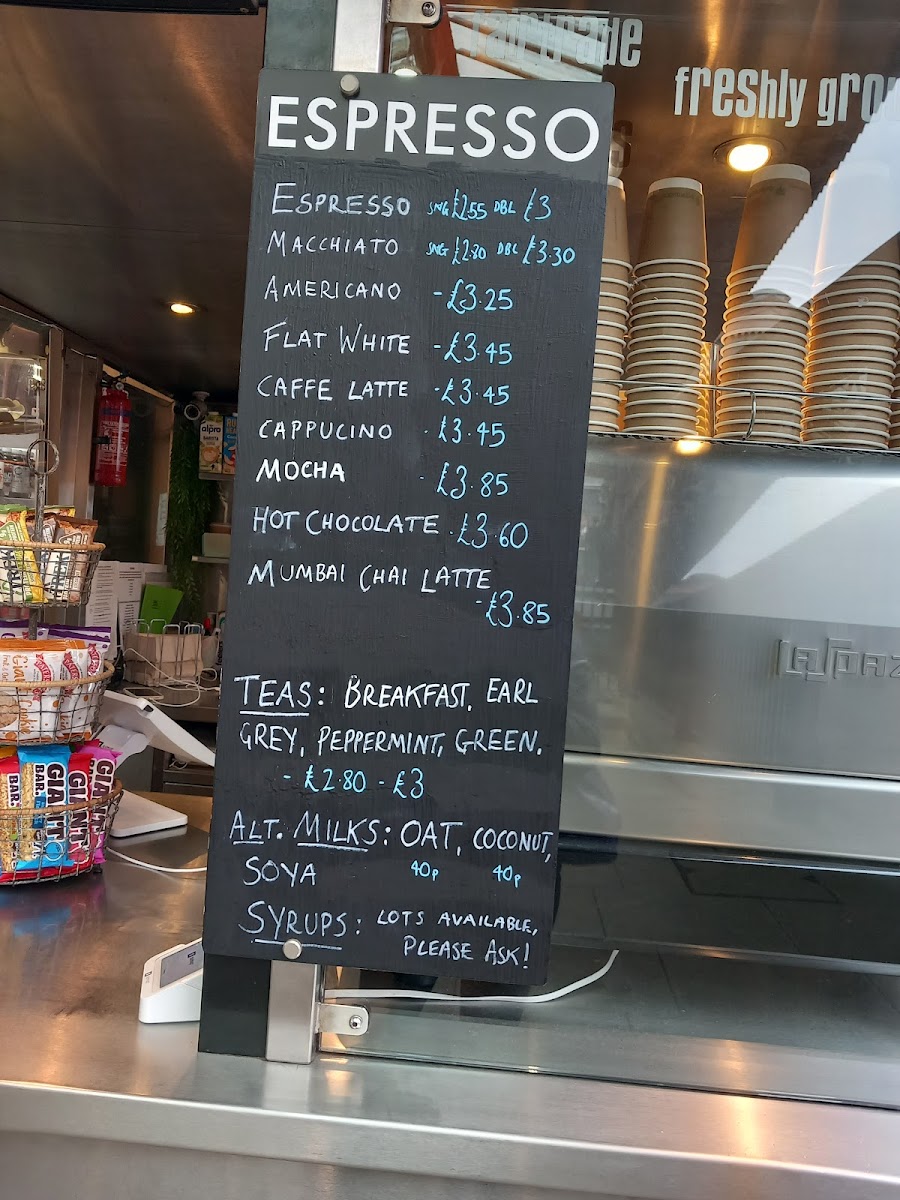 fairtrade
freshly gro
ESPRESSO
ESPRESSO SNG £2.55 DBL £3
MACCHIATO SNG £2.80 DBL £3.30
AMERICANO -£3.25
FLAT WHITE -£3.45
CAFFE LATTE -£3.45
CAPPUCINO -£3.45
MOCHA -£3.85
HOT CHOCOLATE -£3.60
MUMBAI CHAI LATTE
-£3.85
TEAS: BREAKFAST, EARL
GREY, PEPPERMINT, GREEN.
- £2.80 - £3
ALT. MILKS: OAT, COCONUT,
SOYA 40p 40p
SYRUPS: LOTS AVAILABLE,
PLEASE ASK!
alpro
GIANT
BAR.